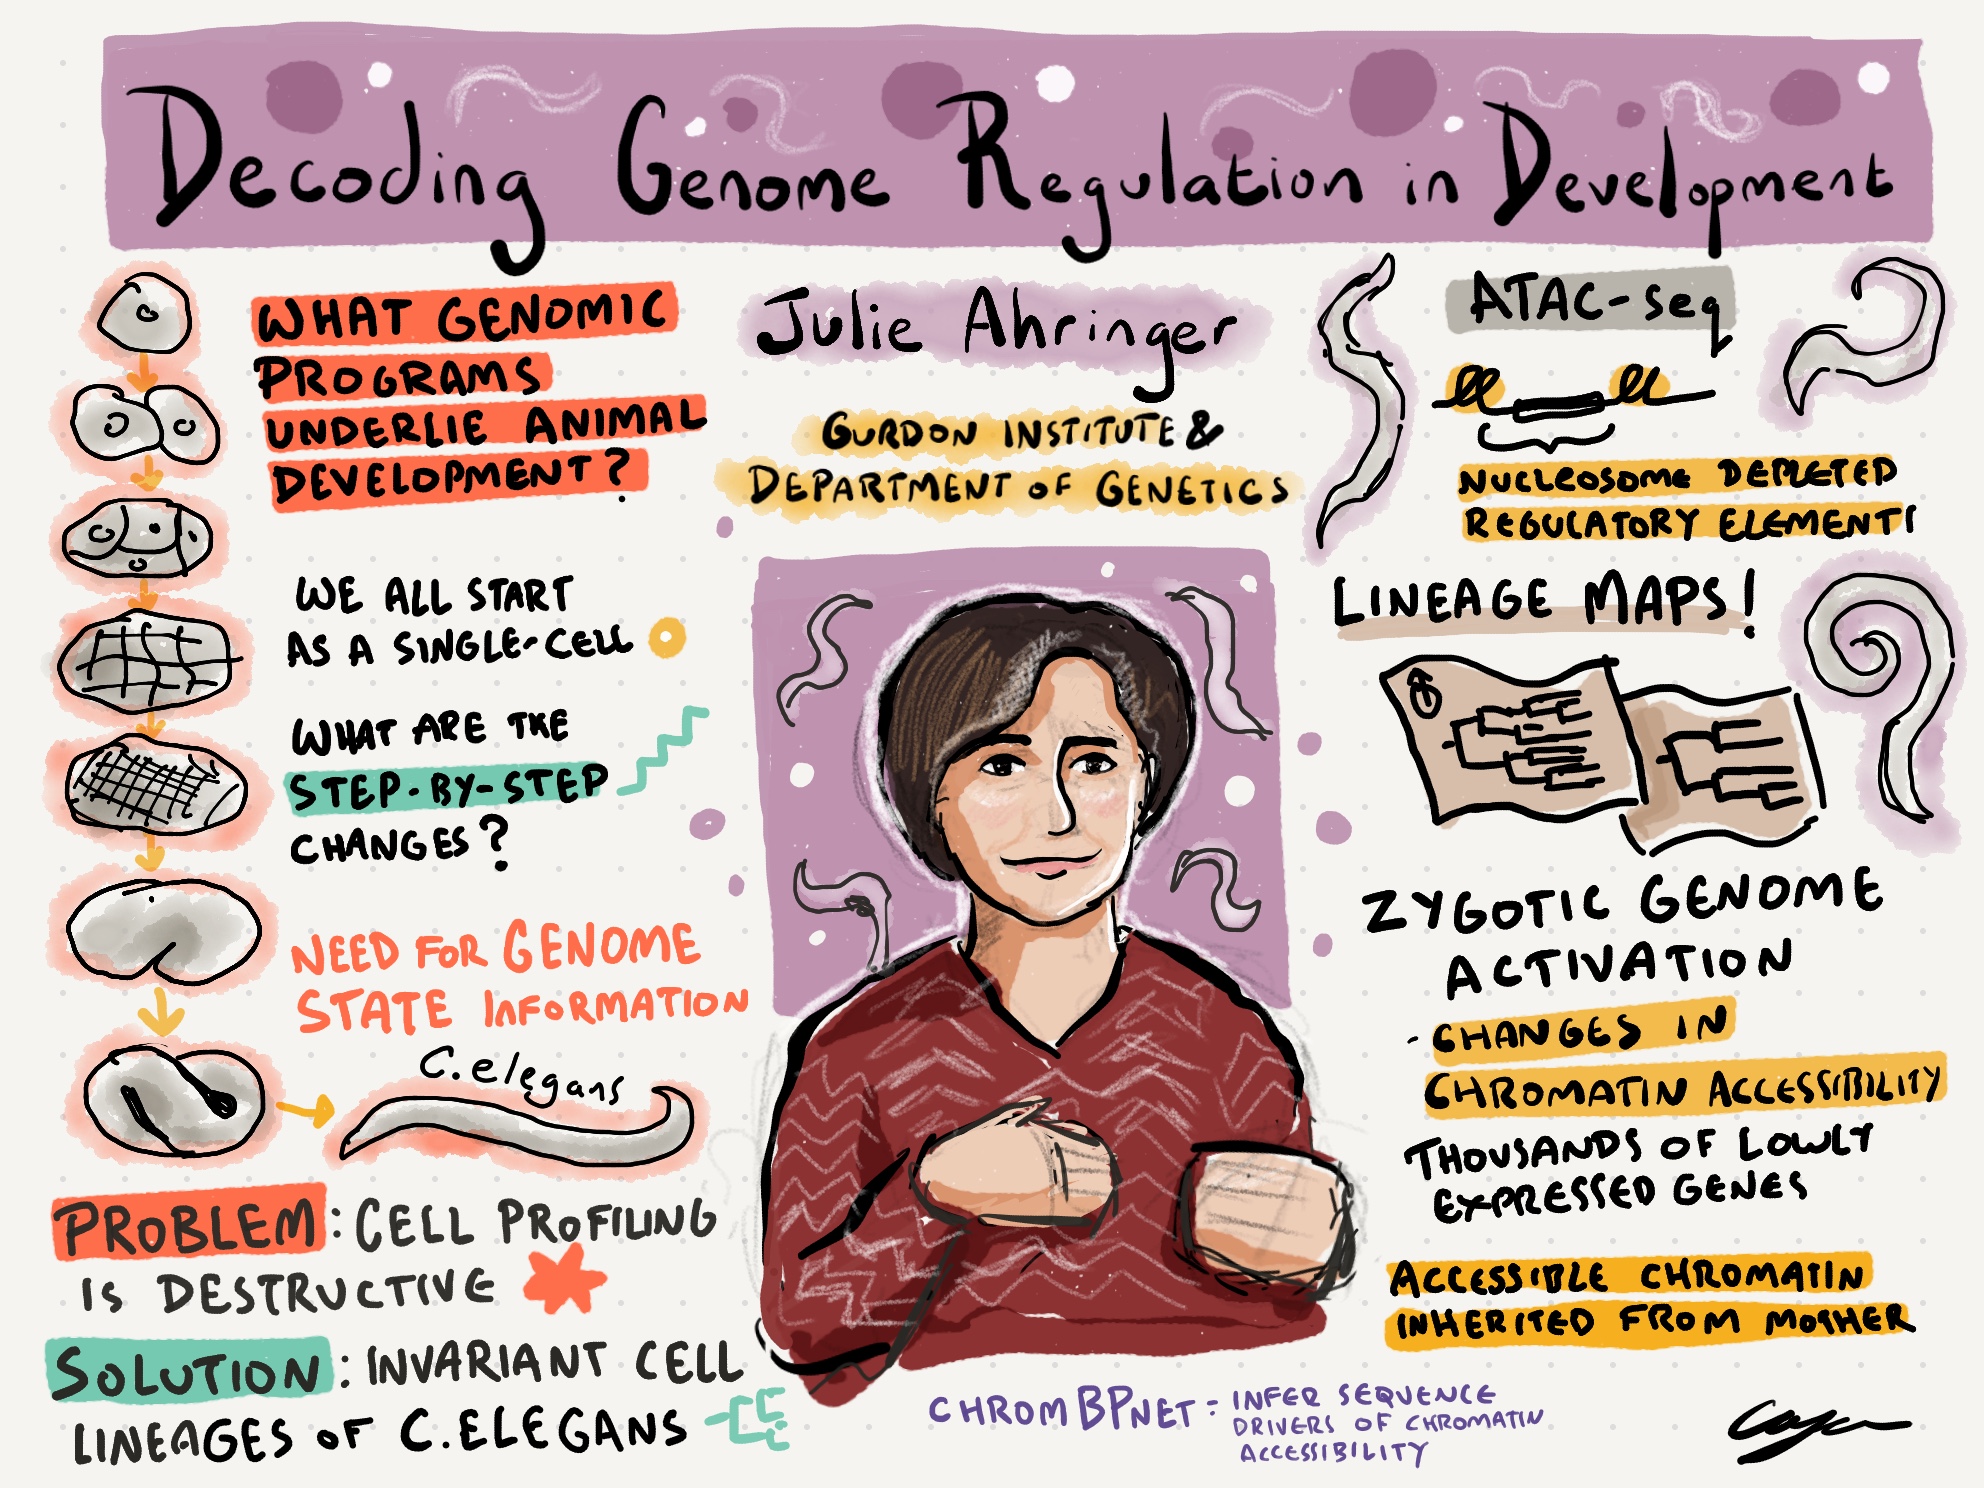 Decoding Genome Regulation in Development
WHAT GENOMIC
PROGRAMS
UNDERLIE ANIMAL
DEVELOPMENT?
WE ALL START
AS A SINGLE-CELL
WHAT ARE THE
STEP-BY-STEP
CHANGES?
NEED FOR GENOME
STATE INFORMATION
C.elegans
PROBLEM: CELL PROFILING
IS DESTRUCTIVE
SOLUTION: INVARIANT CELL
LINEAGES OF C.ELEGANS
Julie Ahringer
GURDON INSTITUTE &
DEPARTMENT OF GENETICS
CHROMBPNET: INFER SEQUENCE
DRIVERS OF CHROMATIN
ACCESSIBILITY
ATAC-seq
NUCLEOSOME DEPLETED
REGULATORY ELEMENTS
LINEAGE MAPS!
ZYGOTIC GENOME
ACTIVATION
- CHANGES IN
CHROMATIN ACCESSIBILITY
THOUSANDS OF LOWLY
EXPRESSED GENES
ACCESSIBLE CHROMATIN
INHERITED FROM MOTHER